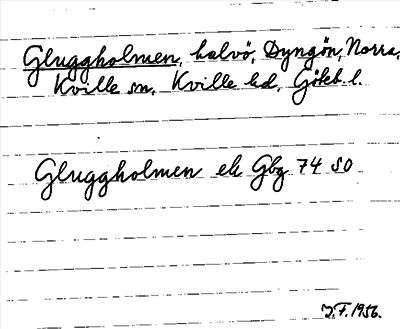 Gluggholmen, halvö, Dyngön, Norra,
Kville sn, Kville hd, Götebl.
Gluggholmen ek Gbg 74 SO
J.F. 1956.